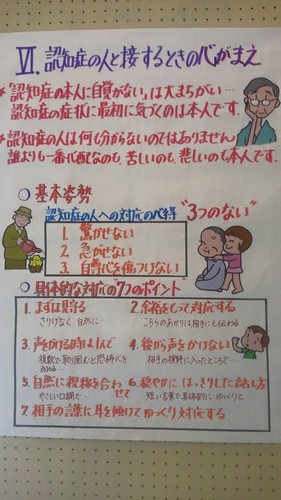 Ⅵ. 認知症の人と接するときの心がまえ
*「認知症の本人に自覚がない」は大まちがい…
認知症の症状に最初に気づくのは本人です.
*認知症の人は何も分からないのではありません
誰よりも一番心配なのも、苦しいのも、悲しいのも本人です.
○ 基本姿勢
認知症の人への対応の心得 "3つのない"
1. 驚かせない
2. 急がせない
3. 自尊心を傷つけない
○ 具体的な対応の"7つのポイント"
1. まずは見守る
さりげなく 自然に…
2. 余裕をもって対応する
こちらのあせりは相手にも伝わる
3. 声をかける時は1人で
複数で取り囲むと恐怖心を
4. 後から声をかけない
相手の視野に入ったところで…
5. 自然に視線を合わせて
やさしい口調で…
6. 穏やかに、はっきりした話し方
短い言葉で具体的に、ゆっくりと
7. 相手の言葉に耳を傾けてゆっくり対応する